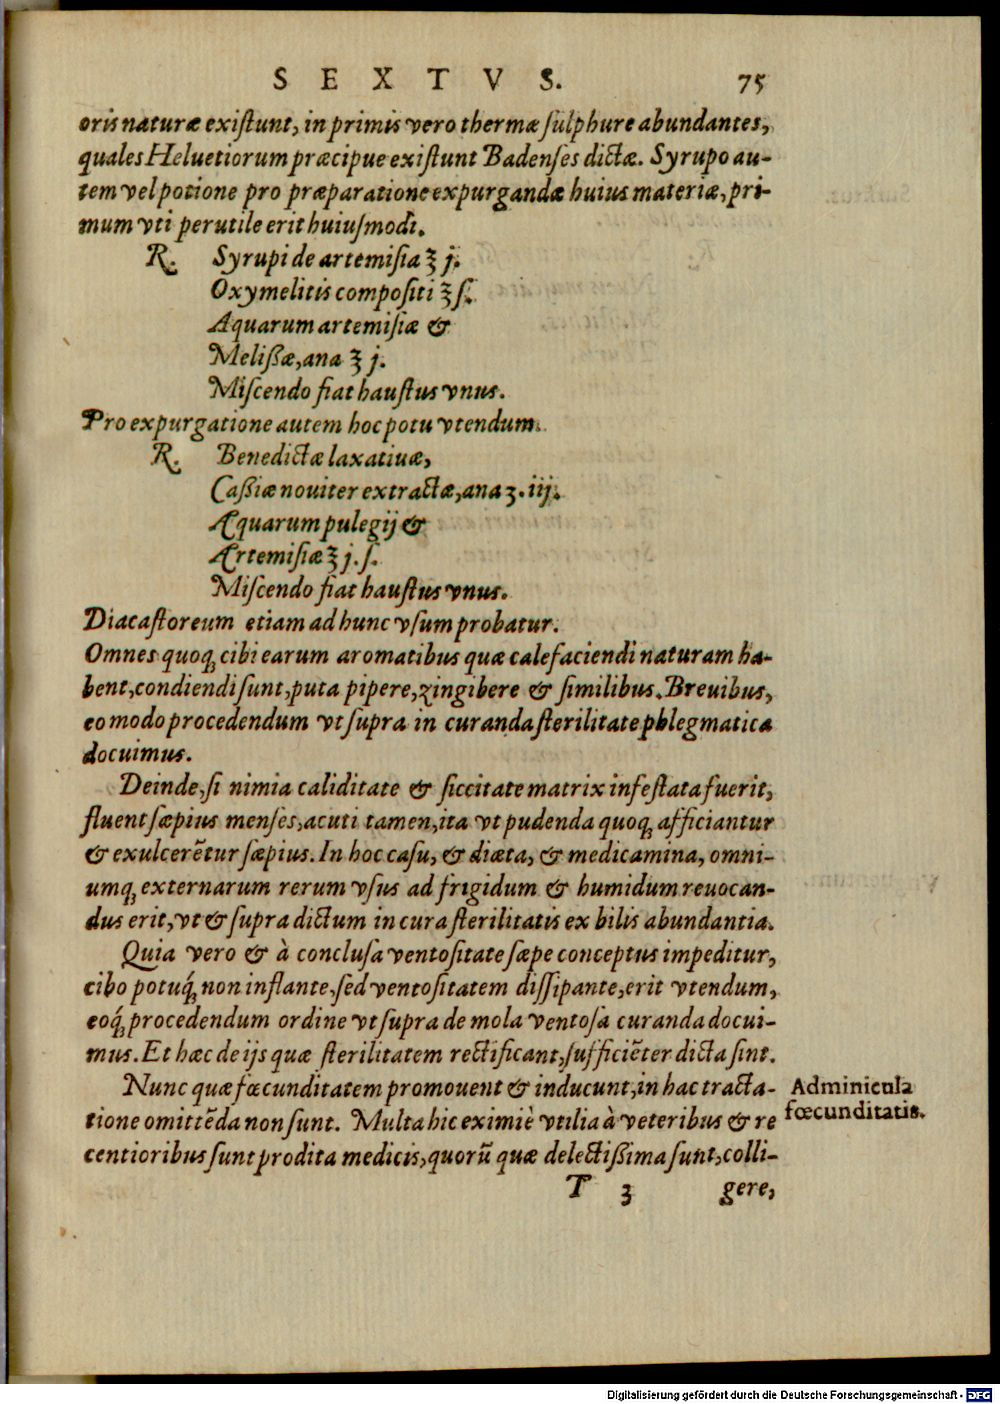 SEXTVS. 75
oris naturæ exiſtunt, in primis vero thermæ ſulphure abundantes,
quales Heluetiorum præcipue exiſtunt Badenſes dictæ. Syrupo au-
tem vel potione pro præparatione expurgandæ huius materiæ, pri-
mum vti perutile erit huiuſmodi.
℞. Syrupi de artemiſia ℥ j.
Oxymelitis compoſiti ℥ ſ.
Aquarum artemiſiæ &
Melißæ, ana ℥ j.
Miſcendo fiat hauſtus vnus.
Pro expurgatione autem hoc potu vtendum.
℞. Benedictæ laxatiuæ,
Caßiæ nouiter extractæ, ana ʒ. iij.
Aquarum pulegij &
Artemiſiæ ℥ j. ſ.
Miſcendo fiat hauſtus vnus.
Diacaſtoreum etiam ad hunc vſum probatur.
Omnes quoq; cibi earum aromatibus quæ calefaciendi naturam ha-
bent, condiendi ſunt, puta pipere, zingibere & ſimilibus. Breuibus,
eo modo procedendum vt ſupra in curanda ſterilitate phlegmatica
docuimus.
Deinde, ſi nimia caliditate & ſiccitate matrix infeſtata fuerit,
fluent ſæpius menſes, acuti tamen, ita vt pudenda quoq; afficiantur
& exulcerẽtur ſæpius. In hoc caſu, & diæta, & medicamina, omni-
umq; externarum rerum vſus ad frigidum & humidum reuocan-
dus erit, vt & ſupra dictum in cura ſterilitatis ex bilis abundantia.
Quia vero & à concluſa ventoſitate ſæpe conceptus impeditur,
cibo potuq́; non inflante, ſed ventoſitatem diſſipante, erit vtendum,
eoq́; procedendum ordine vt ſupra de mola ventoſa curanda docui-
mus. Et hæc de ijs quæ ſterilitatem rectificant, ſufficiẽter dicta ſint.
Nunc quæ fœcunditatem promouent & inducunt, in hac tracta-
tione omittẽda non ſunt. Multa hic eximiè vtilia à veteribus & re
centioribus ſunt prodita medicis, quorũ quæ delectißima ſunt, colli-
Adminicula
fœcunditatis.
T 3 gere,
Digitalisierung gefördert durch die Deutsche Forschungsgemeinschaft - DFG